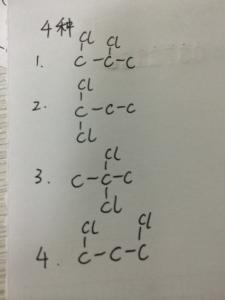 4种
Cl Cl
1. C-C-C
Cl
2. C-C-C
Cl
Cl
3. C-C-C
Cl
Cl Cl
4. C-C-C